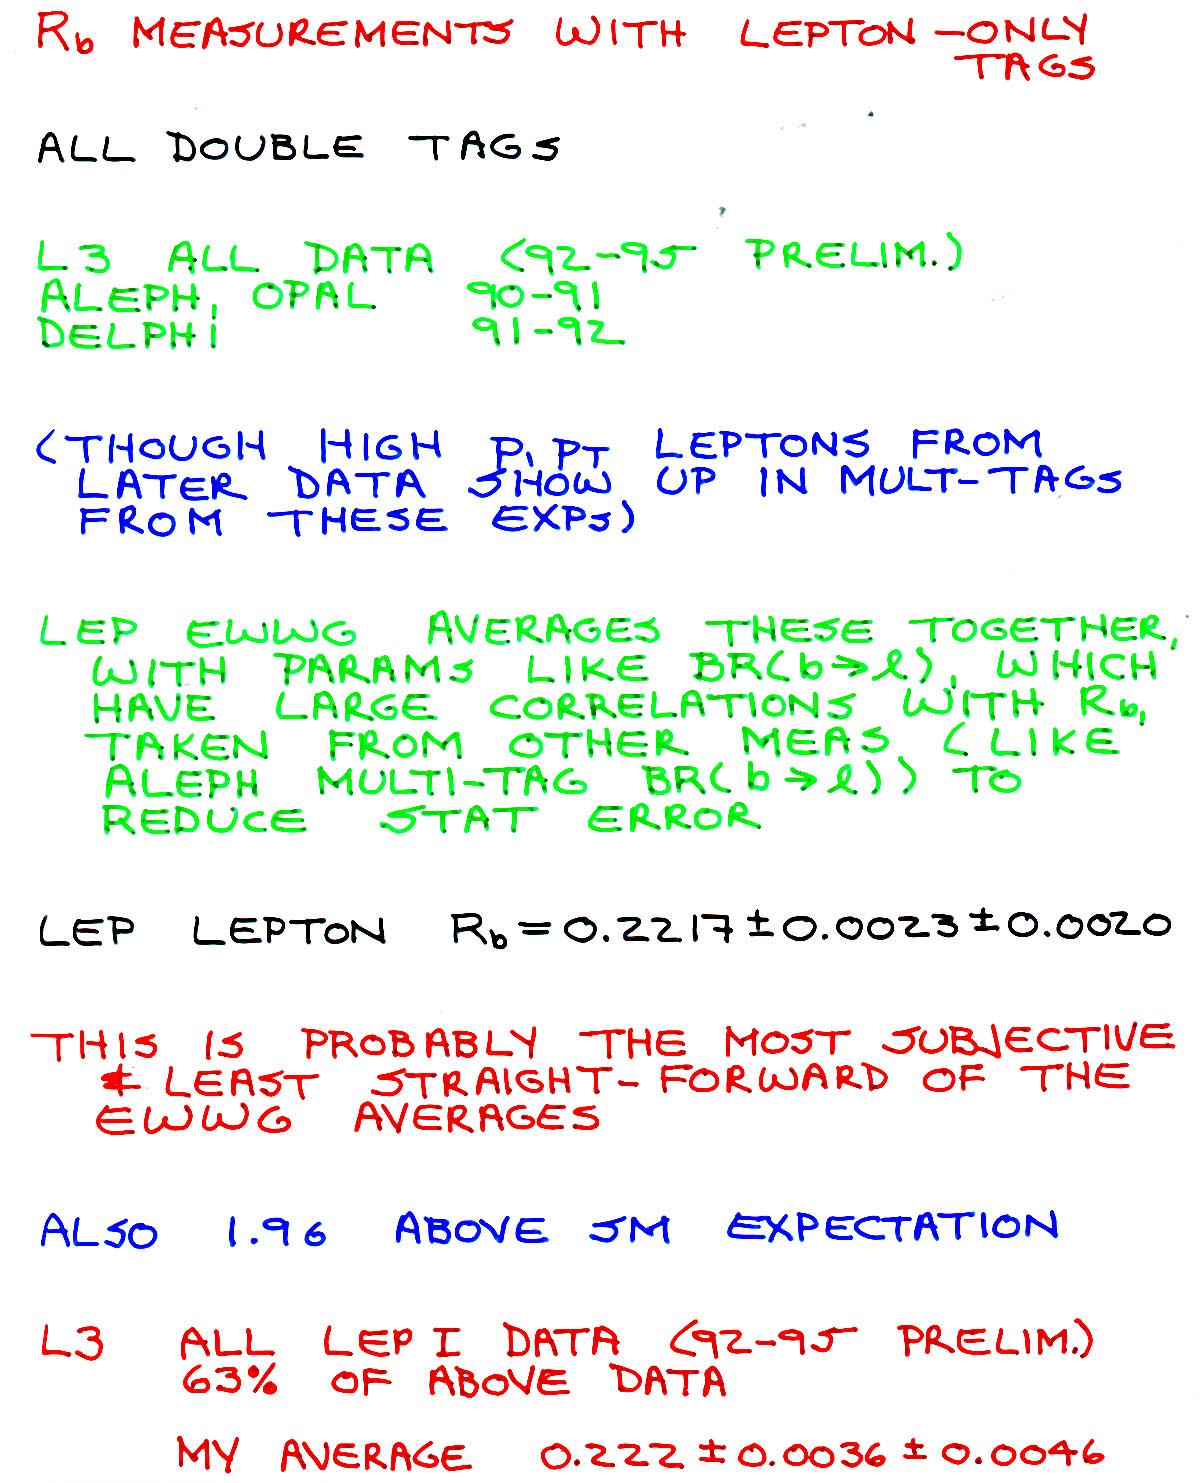 Rb MEASUREMENTS WITH LEPTON-ONLY
TAGS
ALL DOUBLE TAGS
L3 ALL DATA (92-95 PRELIM.)
ALEPH, OPAL 90-91
DELPHI 91-92
(THOUGH HIGH P, PT LEPTONS FROM
LATER DATA SHOW UP IN MULT-TAGS
FROM THESE EXPS)
LEP EWWG AVERAGES THESE TOGETHER,
WITH PARAMS LIKE BR(b→ℓ), WHICH
HAVE LARGE CORRELATIONS WITH Rb,
TAKEN FROM OTHER MEAS (LIKE
ALEPH MULTI-TAG BR(b→ℓ)) TO
REDUCE STAT ERROR
LEP LEPTON Rb = 0.2217 ± 0.0023 ± 0.0020
THIS IS PROBABLY THE MOST SUBJECTIVE
& LEAST STRAIGHT-FORWARD OF THE
EWWG AVERAGES
ALSO 1.96 ABOVE SM EXPECTATION
L3 ALL LEP I DATA (92-95 PRELIM.)
63% OF ABOVE DATA
MY AVERAGE 0.222 ± 0.0036 ± 0.0046